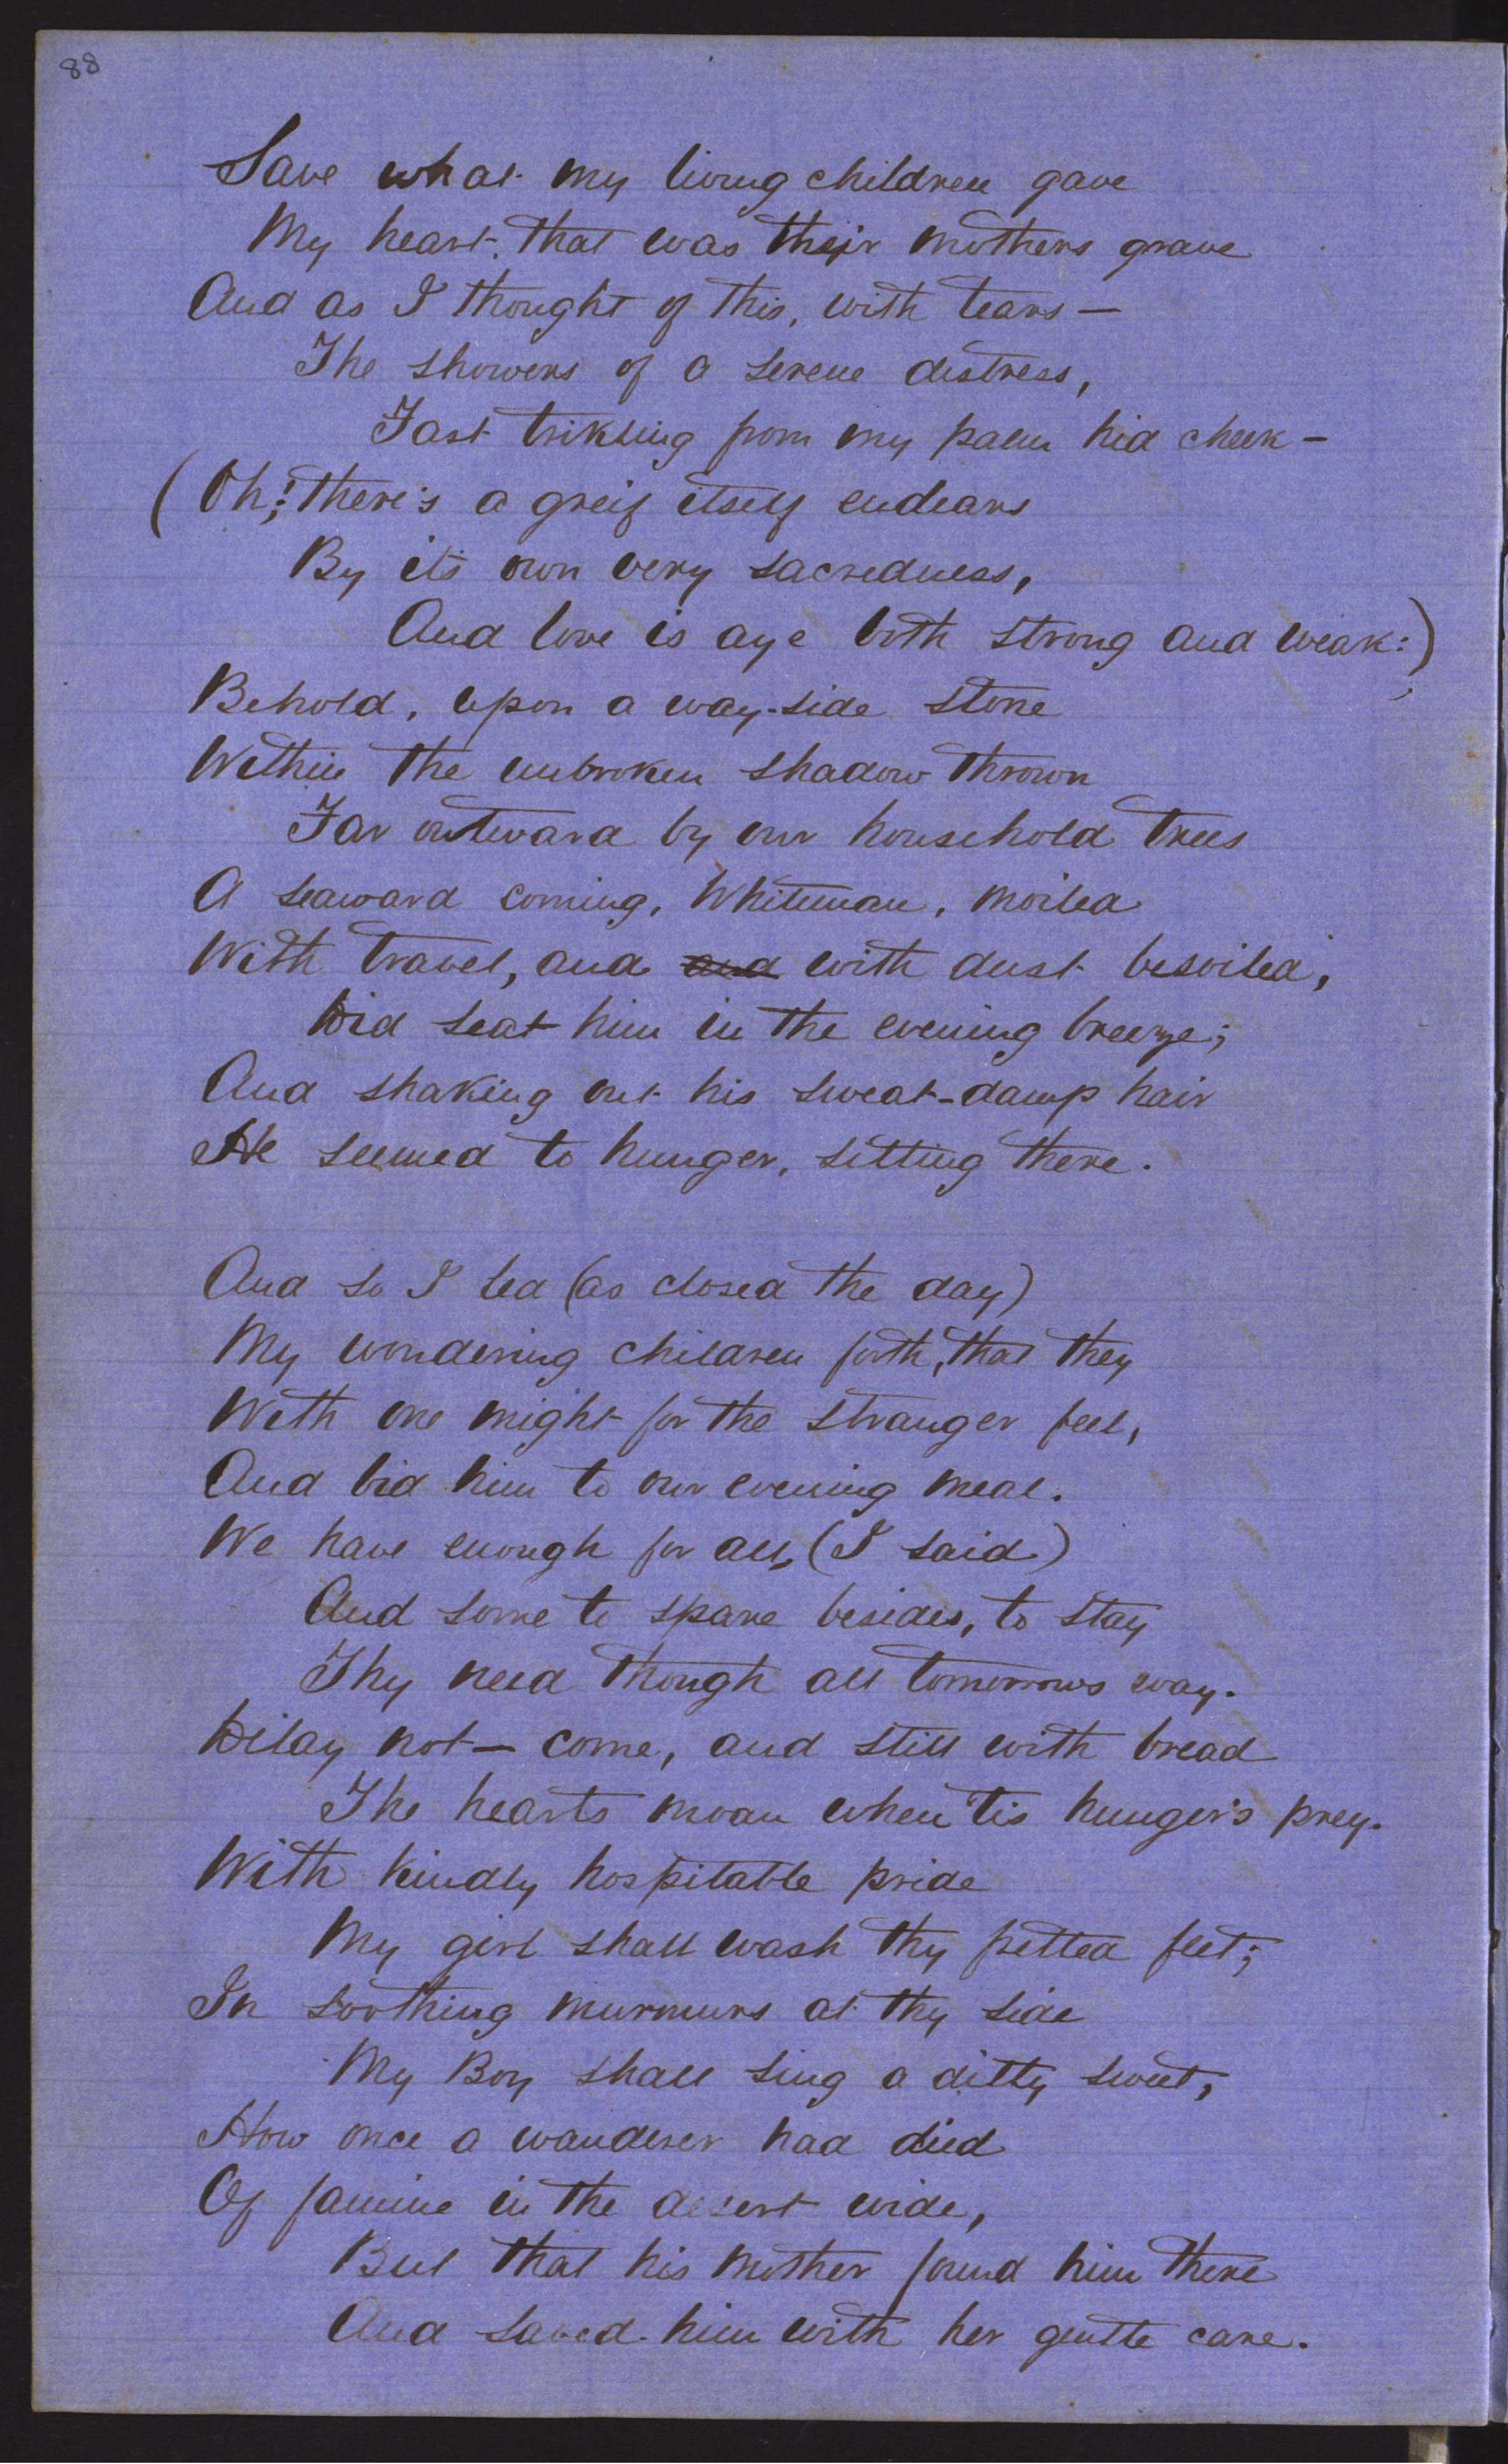 88
Save what my living children gave
My heart. that was their mothers grave
And as I thought of this, with tears—
The showers of a serene distress,
Fast trikling from my palm hid cheek—
(Oh;! there's a greif itself endears
By it's own very sacredness,
And love is aye both strong and weak:)
Behold, upon a way-side stone
Within the unbroken shadow thrown
Far outward by our household trees
A seaward coming, Whiteman, moiled
With travel, and and with dust besoiled,
Did seat him in the evening breeze;
And shaking out his sweat-damp hair
He seemed to hunger, sitting there.
And so I led (as closed the day)
My wondering children forth, that they
With me might for the stranger feel,
And bid him to our evening meal.
We have enough for all, (I said)
And some to spare besides, to stay
Thy need though all tomorrows way.
Delay not— come, and still with bread
The hearts moan when 'tis hunger's prey.
With kindly hospitable pride
My girl shall wash thy fetted feet;
In soothing murmurs at thy side
My Boy shall sing a ditty sweet,
How once a wanderer had died
Of famine in the desert wide,
But that his mother found him there
And saved him with her gentle care.